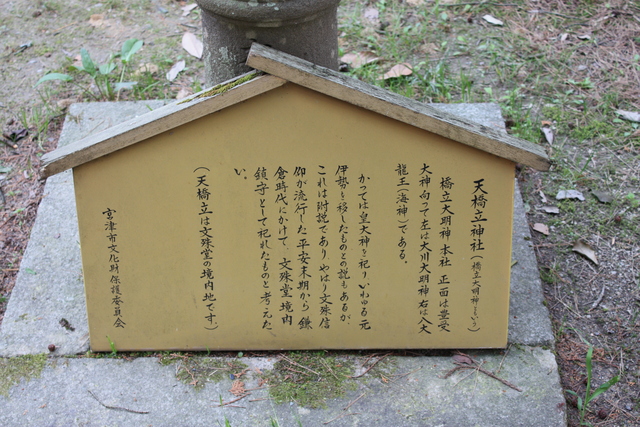 天橋立神社(橋立大明神という)
橋立大明神 本社 正面は豊受
大神 向って左は大川大明神 右は八大
龍王(海神)である。
かつては皇大神を祀り いわゆる元
伊勢を移したものとの説もあるが
これは附説であり、やはり文殊信
仰が流行した平安末期から鎌
倉時代にかけて、文殊堂境内
鎮守として祀れたものと考えた
い。
(天橋立は文殊堂の境内地です)
宮津市文化財保護委員会